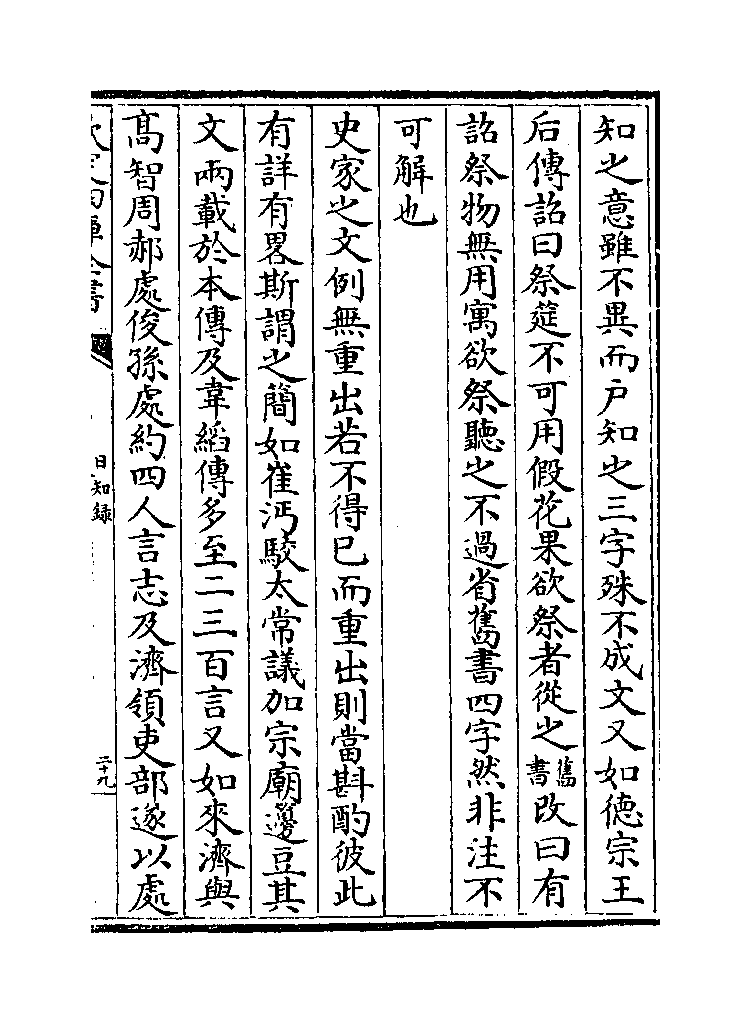 知之意雖不異而戶知之三字殊不成文又如徳宗王
后傳詔曰祭筵不可用假花果欲祭者從之舊書改曰有
詔祭物無用寓欲祭聽之不過省舊書四字然非注不
可解也
史家之文例無重出若不得已而重出則當斟酌彼此
有詳有畧斯謂之簡如崔沔駮太常議加宗廟籩豆其
文兩載於本傳及韋縚傳多至二三百言又如來濟與
高智周郝處俊孫處約四人言志及濟領吏部遂以處
日知録
二十九